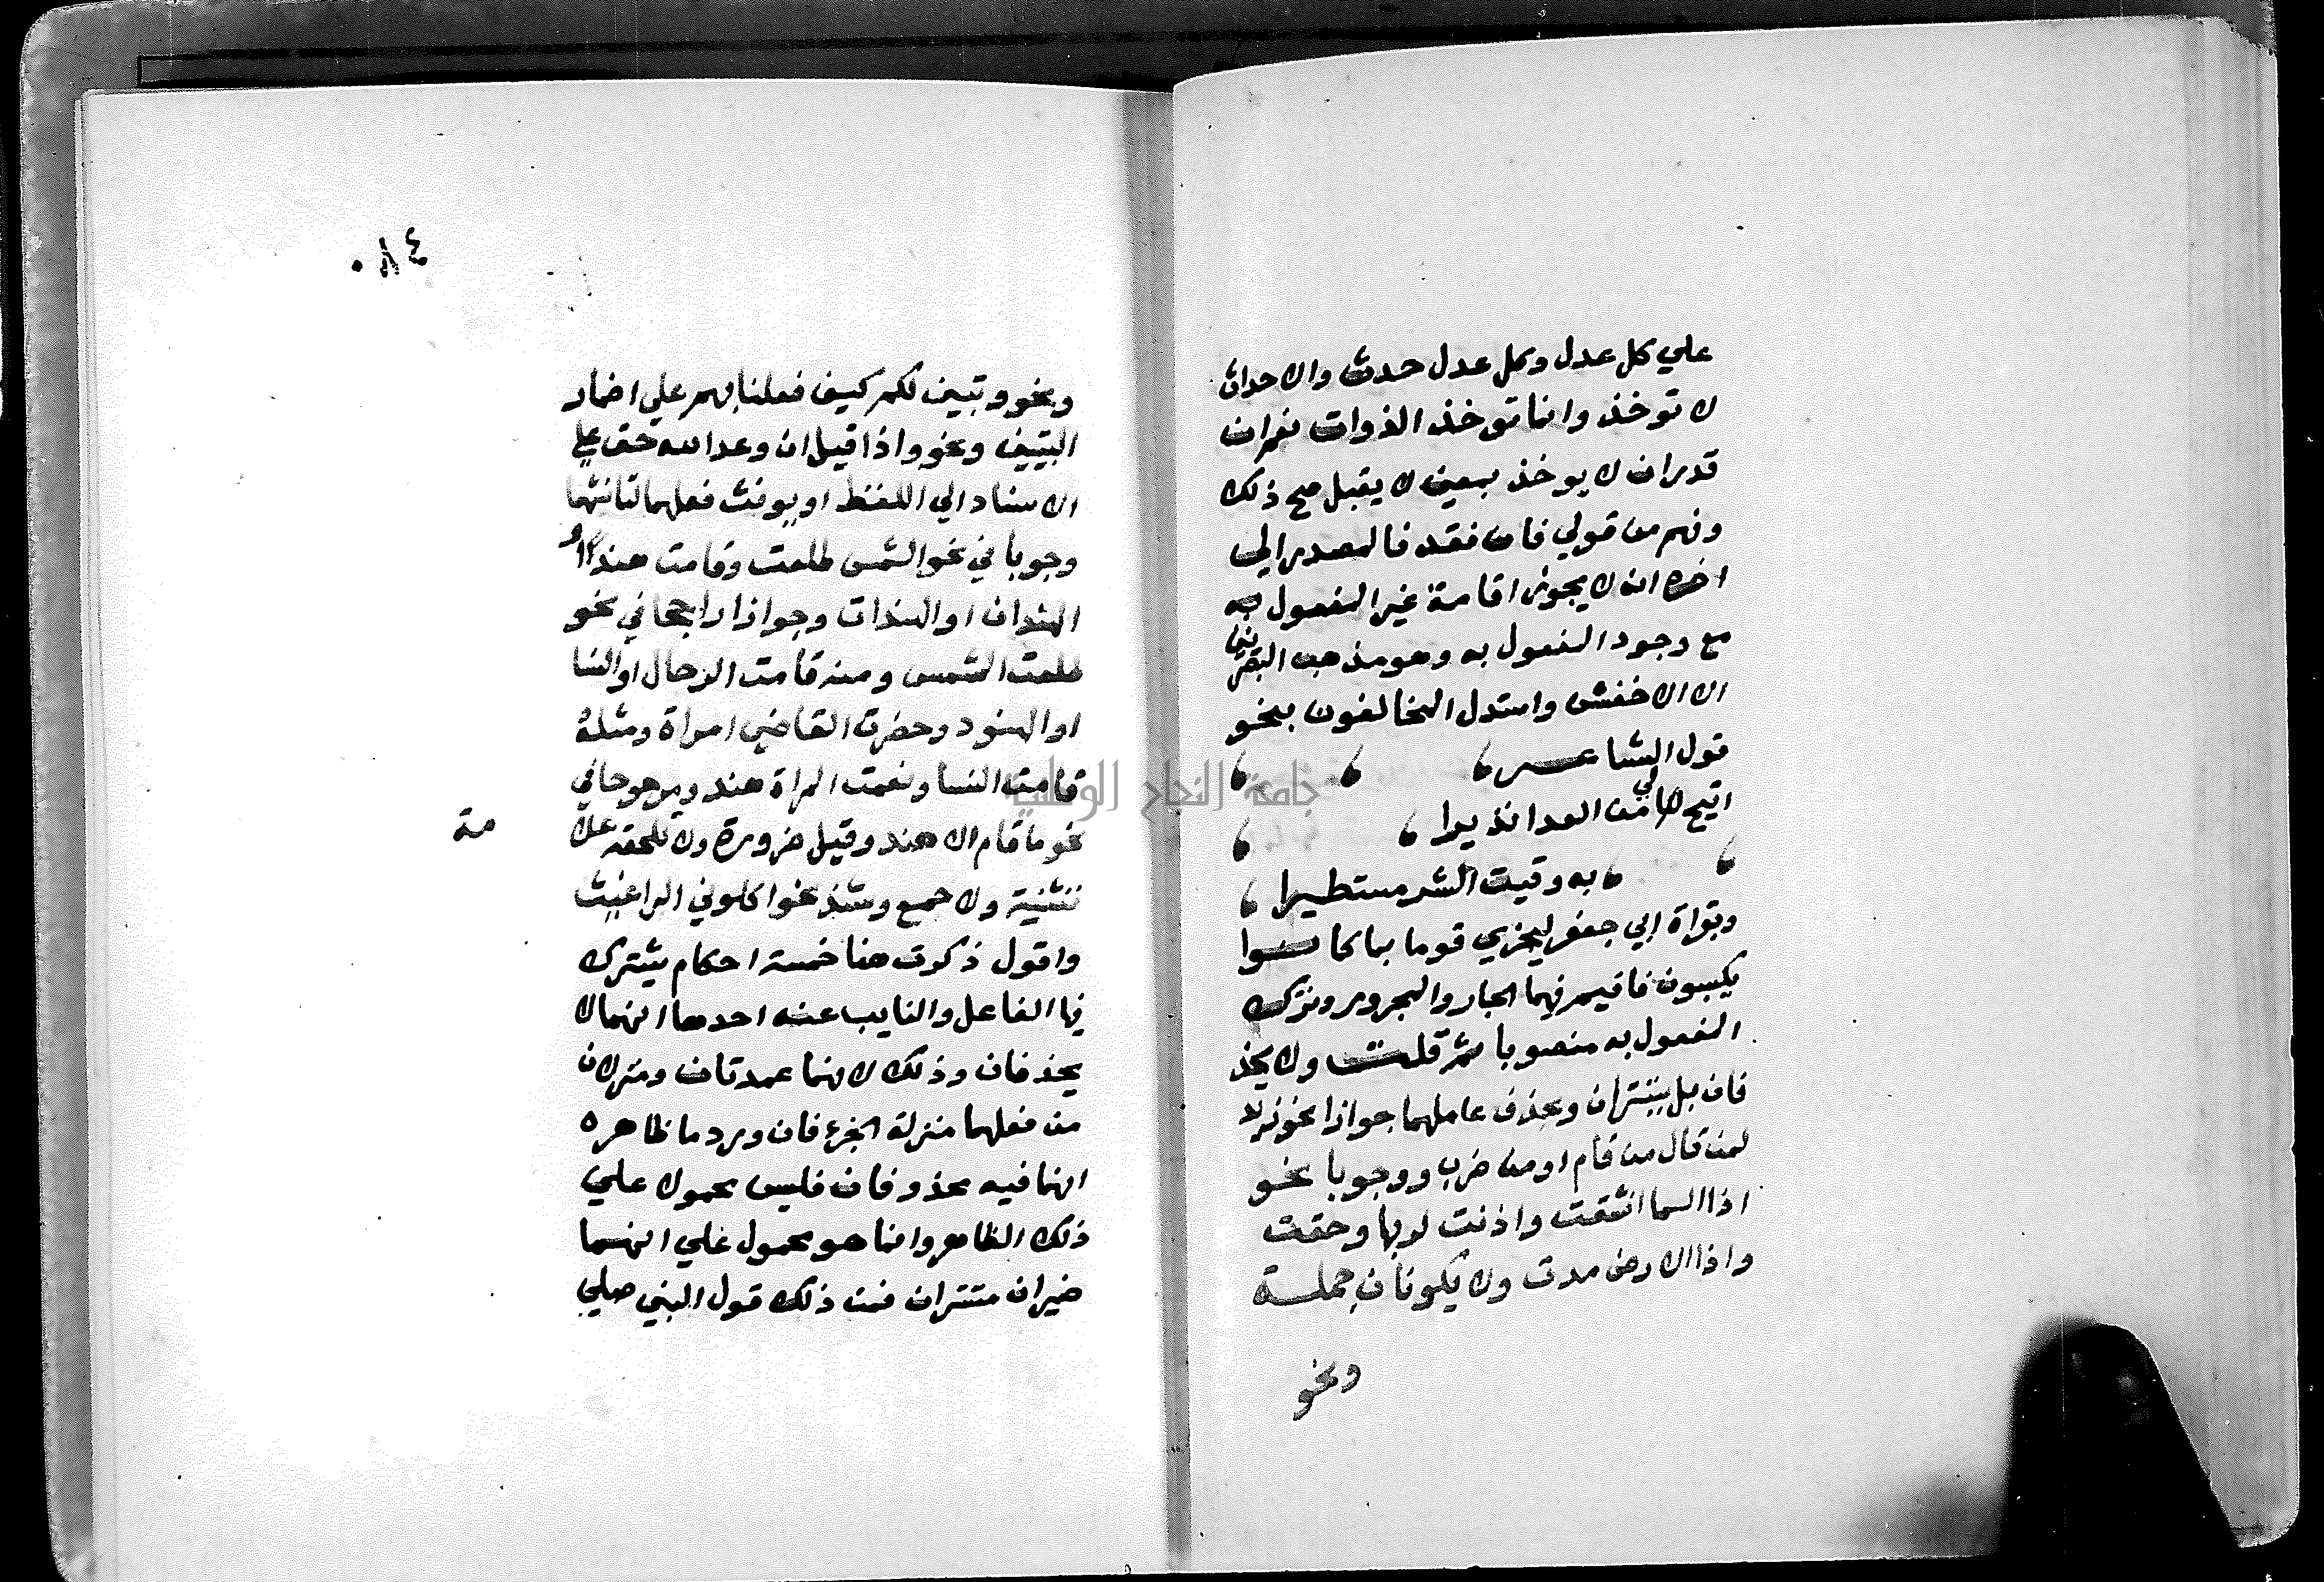 علي كل عدل وكل عدل حدث والاحداث
لا توخذ وانما توخذ الذوات نعم ان
قدر ان لا يوخذ بمعني لا يقبل صح ذلك
وفهم من قولي فان فقد فالمصدر الي
اخره انه لا يجوز اقامة غير المفعول به
مع وجود المفعول به وهو مذهب البصريين
الا الاخفش واستدل المخالفون بنحو
قول الشاعر
اتيح لي من العدا نذيرا
به وقيت الشر مستطيرا
وبقراة ابي جعفر ليجزي قوما بما كانوا
يكسبون فاقيم فيهما الجار والمجرور وترك
المفعول به منصوبا ثم قلت ولا يحذ
فان بل يستتران ويحذف عاملهما جوازا نحو زيد
لمن قال من قام او من ضرب ووجوبا نحو
اذا السما انشقت واذنت لربها وحقت
واذا الارض مدت ولا يكونان جملة
ونحو
٠٨٤
ونحو وتبين لكم كيف فعلنا بهم علي اضمار
التبيين ونحو واذا قيل ان وعد الله حق علي
الاسناد الي اللفظ او يونث فعلهما لتانثهما
وجوبا في نحو الشمس طلعت وقامت هند او
الهندان او الهندات وجوازا راجحا في نحو
طلعت الشمس ومنه قامت الرجال او النسا
او الهنود وحضرت القاضي امراة ومثله
قامت النسا ونعمت المراة هند ومرجوحا في
نحو ما قام الا هند وقيل ضرورة ولا تلحقه علا
مة
تثنية ولا جمع وشذ نحو اكلوني البراغيث
واقول ذكرت هنا خمسة احكام يشترك
فيها الفاعل والنايب عنه احدها انهما لا
يحذفان وذلك لانهما عمدتان ومنزلان
من فعلهما منزلة الجزء فان ورد ما ظاهره
انهما فيه محذوفان فليس محمولا علي
ذلك الظاهر وانما هو محمول علي انهما
ضميران مستتران فمن ذلك قول النبي صلي
جامعة النجاح الوطنية